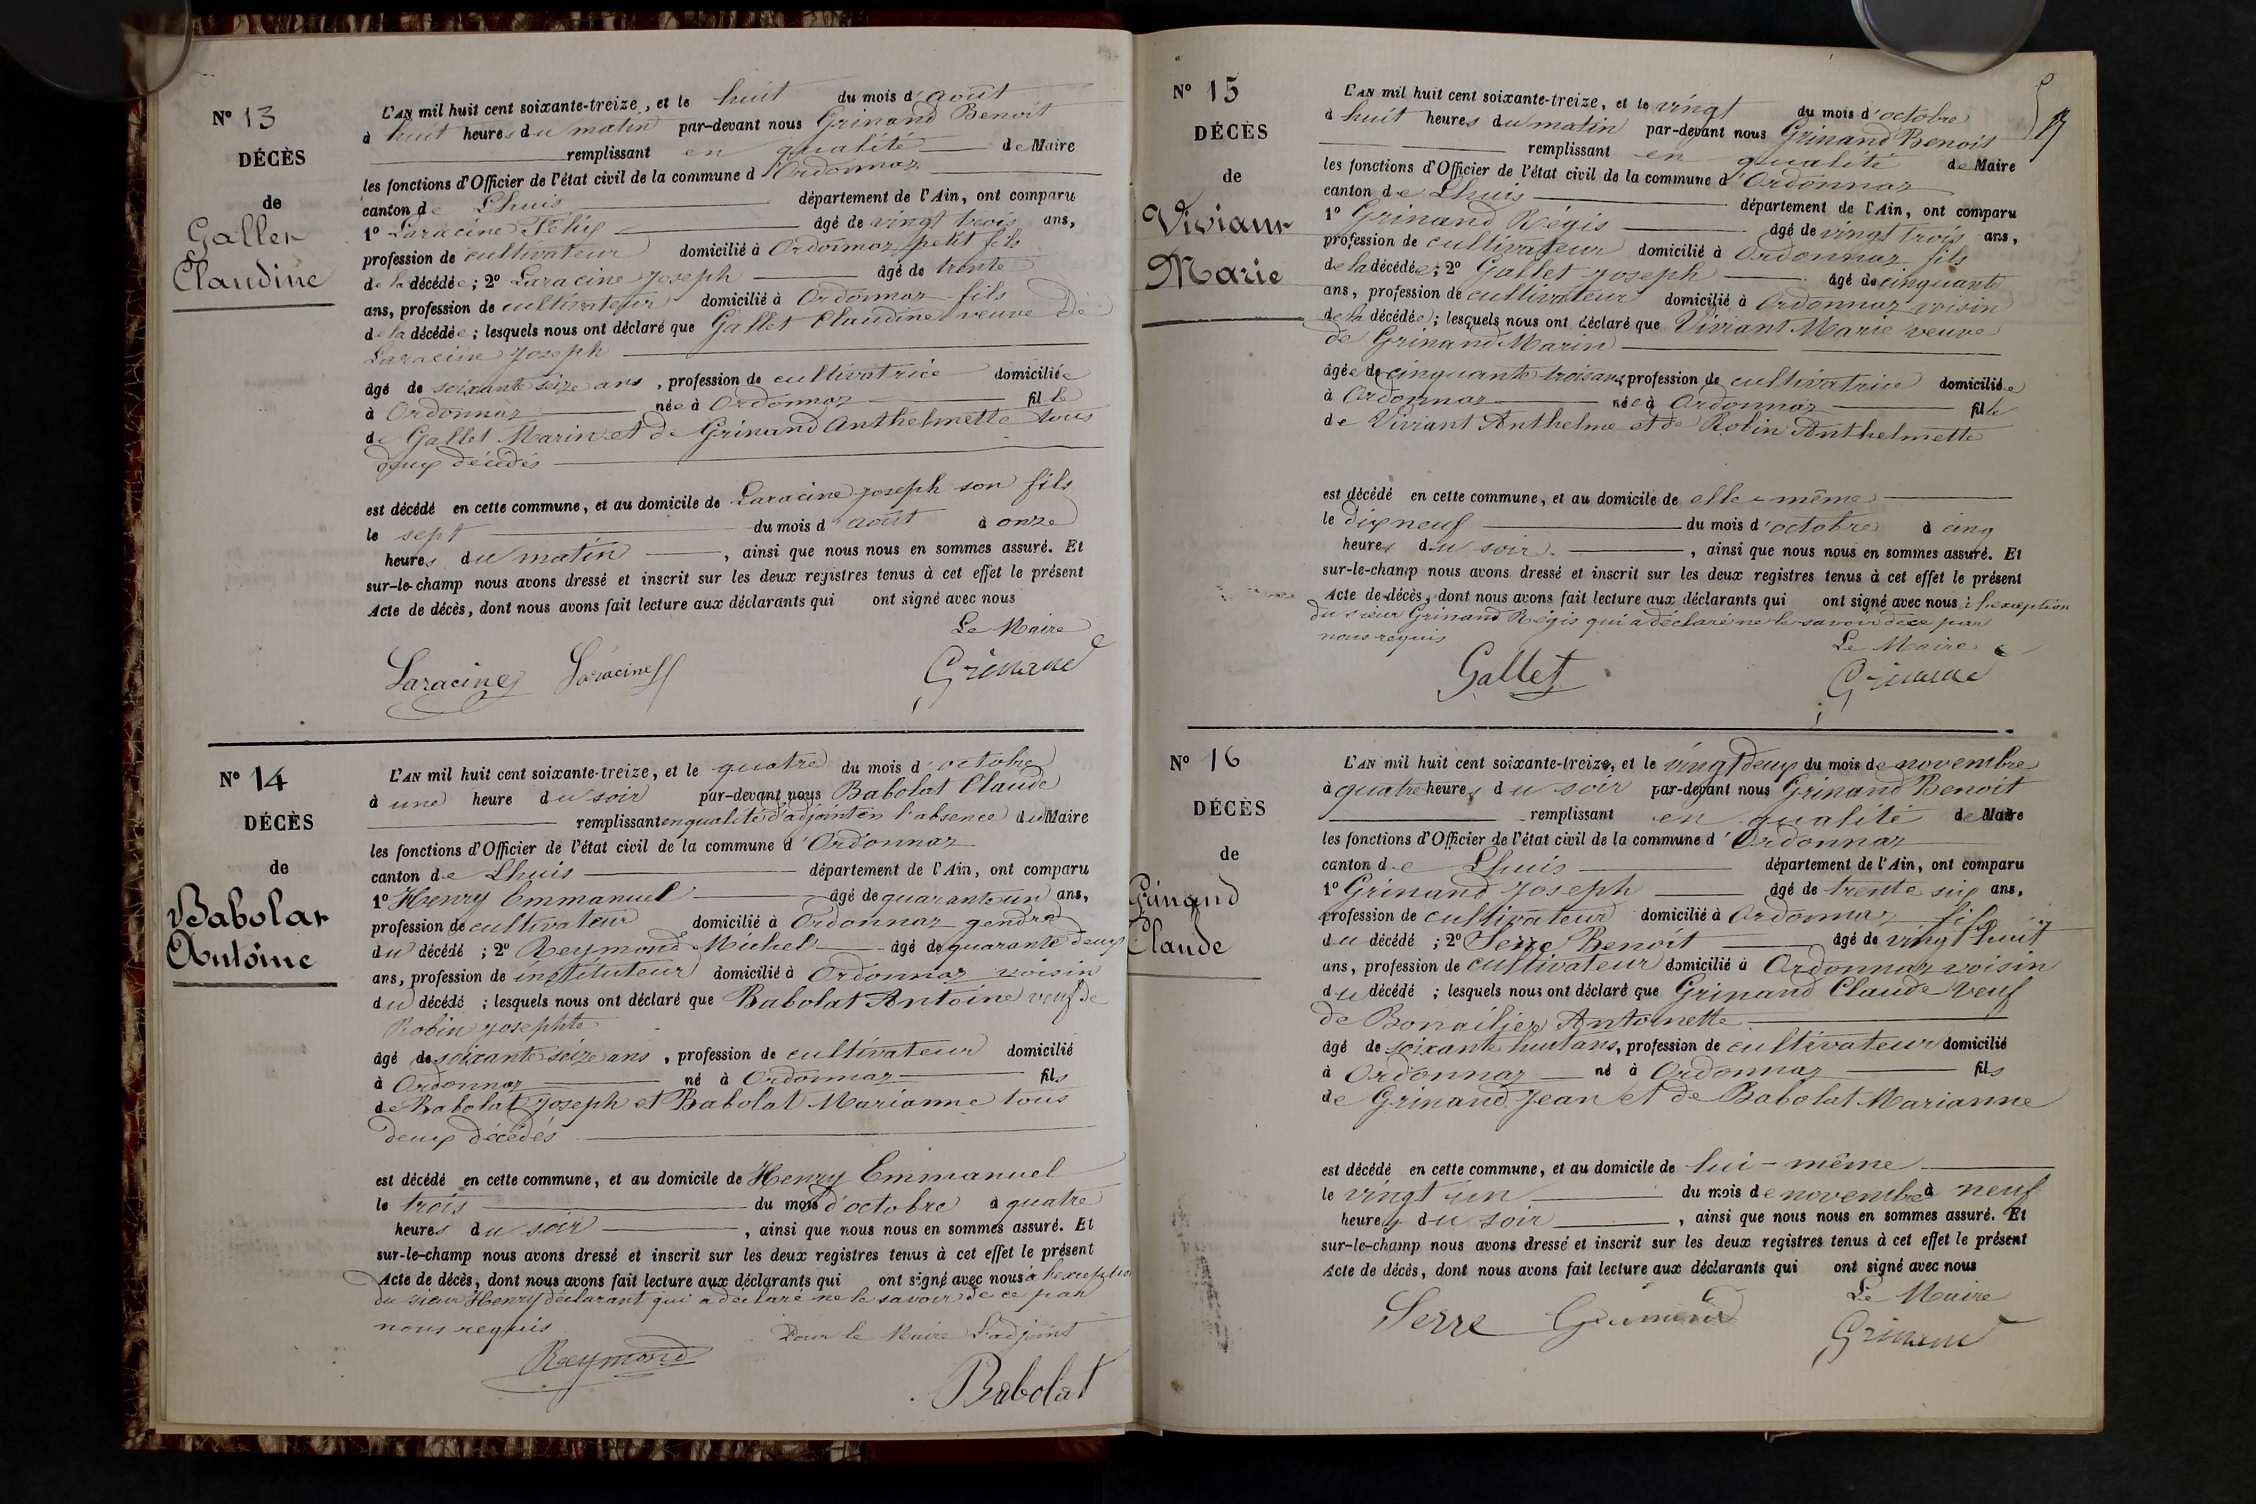 N° 13
DÉCÈS
de
Gallet
Claudine
L'AN mil huit cent soixante-treize, et le huit du mois d'août
à huit heures du matin par-devant nous Grinand Benoit
remplissant en qualité de Maire
les fonctions d'Officier de l'état civil de la commune d'Ordonnaz
canton de Lhuis département de l'Ain, ont comparu
1° Laracine Félix âgé de vingt trois ans,
profession de cultivateur domicilié à Ordonnaz petit fils
de la décédée; 2° Laracine Joseph âgé de trente
ans, profession de cultivateur domicilié à Ordonnaz fils
de la décédée; lesquels nous ont déclaré que Gallet Claudine veuve de
Laracine Joseph
âgé de soixante seize ans, profession de cultivatrice domiciliée
à Ordonnaz née à Ordonnaz fille
de Gallet Marin et de Grinand Anthelmette tous
deux décédés
est décédé en cette commune, et au domicile de Laracine Joseph son fils
le sept du mois d'août à onze
heures du matin, ainsi que nous nous en sommes assuré. Et
sur-le-champ nous avons dressé et inscrit sur les deux registres tenus à cet effet le présent
Acte de décès, dont nous avons fait lecture aux déclarants qui ont signé avec nous
Le Maire
Laracine Laracine Grinand
N° 14
DÉCÈS
de
Babolat
Antoine
L'AN mil huit cent soixante-treize, et le quatre du mois d'octobre
à une heure du soir par-devant nous Babolat Claude
remplissant en qualité d'adjoint en l'absence du Maire
les fonctions d'Officier de l'état civil de la commune d'Ordonnaz
canton de Lhuis département de l'Ain, ont comparu
1° Henry Emmanuel âgé de quarante un ans,
profession de cultivateur domicilié à Ordonnaz gendre
du décédé; 2° Reymond Michel âgé de quarante deux
ans, profession de instituteur domicilié à Ordonnaz voisin
du décédé; lesquels nous ont déclaré que Babolat Antoine veuf de
Robin Josephte
âgé de soixante seize ans, profession de cultivateur domicilié
à Ordonnaz né à Ordonnaz fils
de Babolat Joseph et Babolat Marianne tous
deux décédés
est décédé en cette commune, et au domicile de Henry Emmanuel
le trois du mois d'octobre à quatre
heures du soir, ainsi que nous nous en sommes assuré. Et
sur-le-champ nous avons dressé et inscrit sur les deux registres tenus à cet effet le présent
Acte de décès, dont nous avons fait lecture aux déclarants qui ont signé avec nous à l'exception
du sieur Henry déclarant qui a déclaré ne le savoir de ce par
nous requis
Pour le Maire L'adjoint
Reymond
Babolat
N° 15
DÉCÈS
de
Viviant
Marie
L'AN mil huit cent soixante-treize, et le vingt du mois d'octobre
à huit heures du matin par-devant nous Grinand Benoit
remplissant en qualité de Maire
les fonctions d'Officier de l'état civil de la commune d'Ordonnaz
canton de Lhuis département de l'Ain, ont comparu
1° Grinand Régis âgé de vingt trois ans,
profession de cultivateur domicilié à Ordonnaz fils
de la décédée; 2° Gallet Joseph âgé de cinquante
ans, profession de cultivateur domicilié à Ordonnaz voisin
de la décédée; lesquels nous ont déclaré que Viviant Marie veuve
de Grinand Marin
âgée de cinquante trois ans, profession de cultivatrice domiciliée
à Ordonnaz née à Ordonnaz fille
de Viviant Anthelme et de Robin Anthelmette
est décédé en cette commune, et au domicile de elle-même
le dix neuf du mois d'octobre à cinq
heures du soir, ainsi que nous nous en sommes assuré. Et
sur-le-champ nous avons dressé et inscrit sur les deux registres tenus à cet effet le présent
Acte de décès, dont nous avons fait lecture aux déclarants qui ont signé avec nous à l'exception
du sieur Grinand Régis qui a déclaré ne le savoir de ce par
nous requis
Le Maire
Gallet Grinand
N° 16
DÉCÈS
de
Grinand
Claude
L'AN mil huit cent soixante-treize, et le vingt deux du mois de novembre
à quatre heures du soir par-devant nous Grinand Benoit
remplissant en qualité de Maire
les fonctions d'Officier de l'état civil de la commune d'Ordonnaz
canton de Lhuis département de l'Ain, ont comparu
1° Grinand Joseph âgé de trente six ans,
profession de cultivateur domicilié à Ordonnaz fils
du décédé; 2° Serre Benoit âgé de vingt huit
ans, profession de cultivateur domicilié à Ordonnaz voisin
du décédé; lesquels nous ont déclaré que Grinand Claude veuf
de Bonailier Antoinette
âgé de soixante huit ans, profession de cultivateur domicilié
à Ordonnaz né à Ordonnaz fils
de Grinand Jean et de Babolat Marianne
est décédé en cette commune, et au domicile de lui-même
le vingt un du mois de novembre à neuf
heures du soir, ainsi que nous nous en sommes assuré. Et
sur-le-champ nous avons dressé et inscrit sur les deux registres tenus à cet effet le présent
Acte de décès, dont nous avons fait lecture aux déclarants qui ont signé avec nous
Le Maire
Serre Grinand Grinand